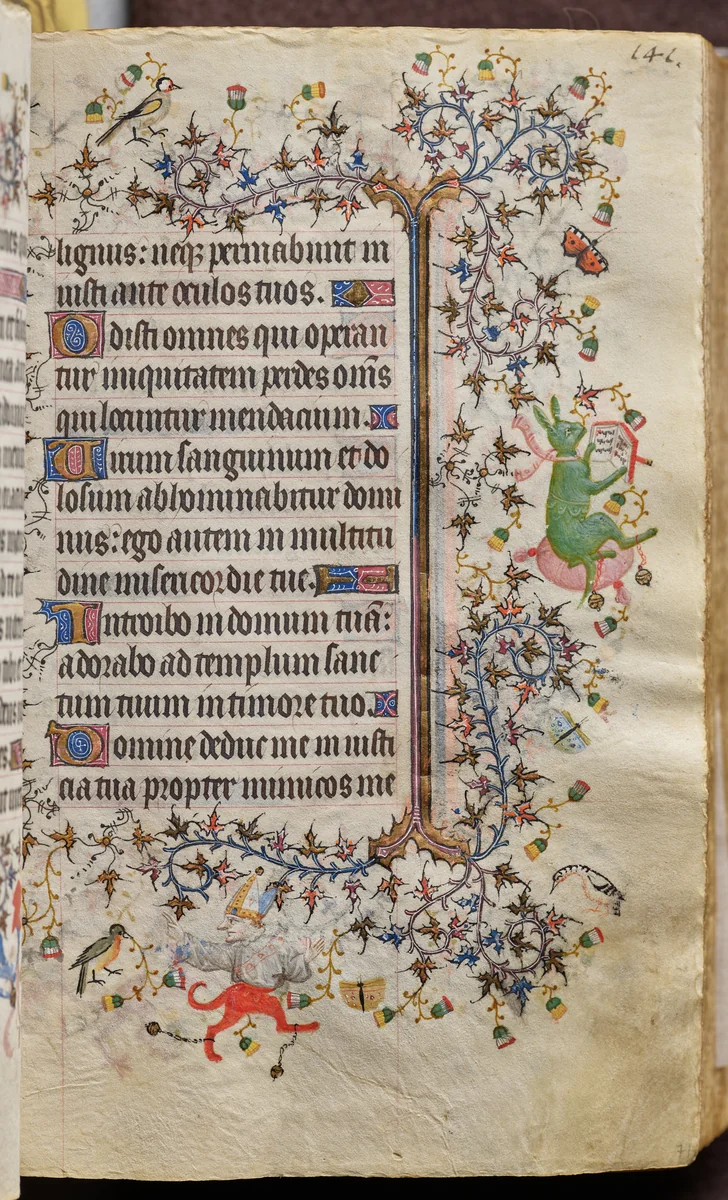 141.
lignus: neqz permabunt in
iusti ante oculos tuos.
Odisti omnes qui operan
tur iniquitatem perdes om̅s
qui locuntur mendacium.
Uirum sanguinum et do
losum abhominabitur domi
nus: ego autem in multitu
dine misericordie tue.
Introibo in domum tuā:
adorabo ad templum sanc
tum tuum in timore tuo.
Domine deduc me in iusti
cia tua propter inimicos me